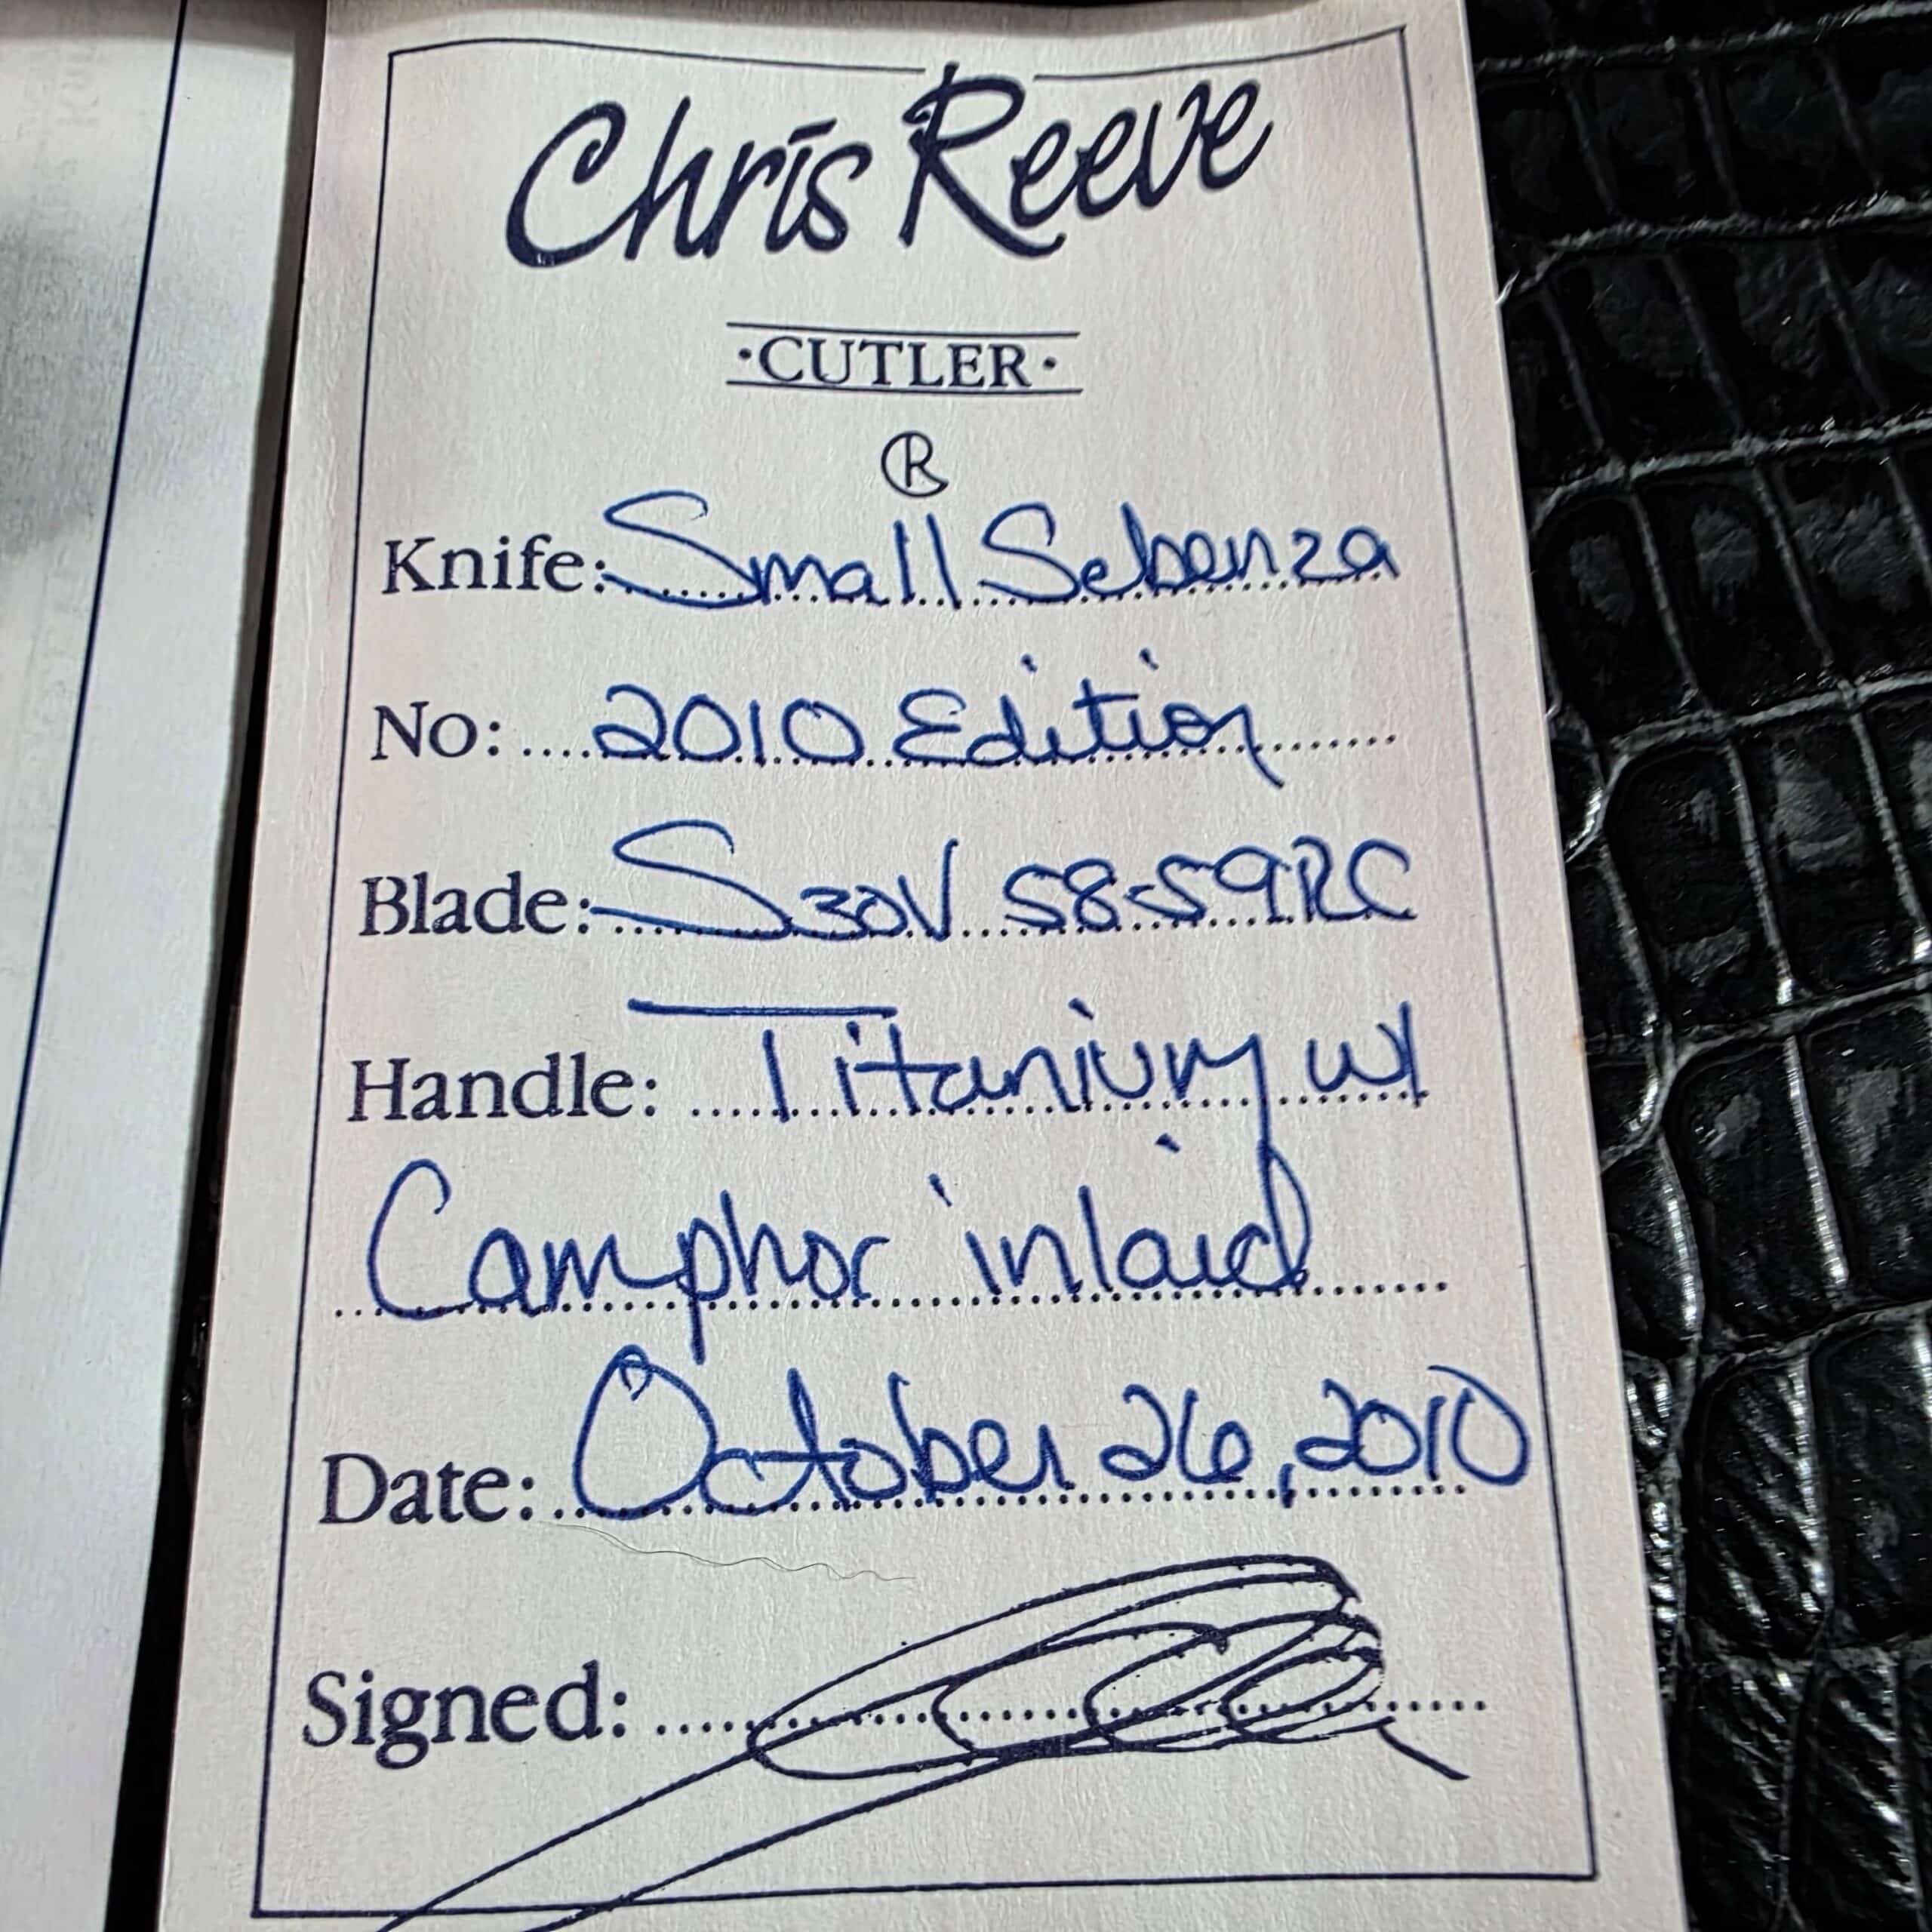 Chris Reeve
·CUTLER·
Knife: Small Sebenza
No: 2010 Edition
Blade: S30V 58-59RC
Handle: Titanium w/
Camphor inlaid
Date: October 26, 2010
Signed: